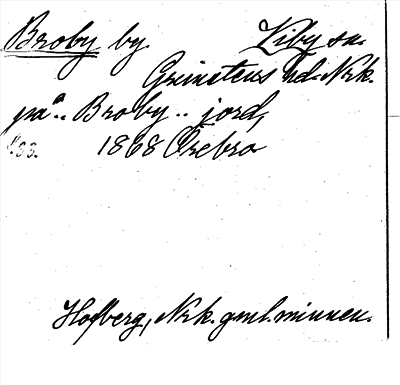 Broby by. Viby sn.
Grimstens hd. Nrk.
på .. Broby .. jord,
s. 33. 1868 Örebro
Hofberg, Nrk. gml. minnen.